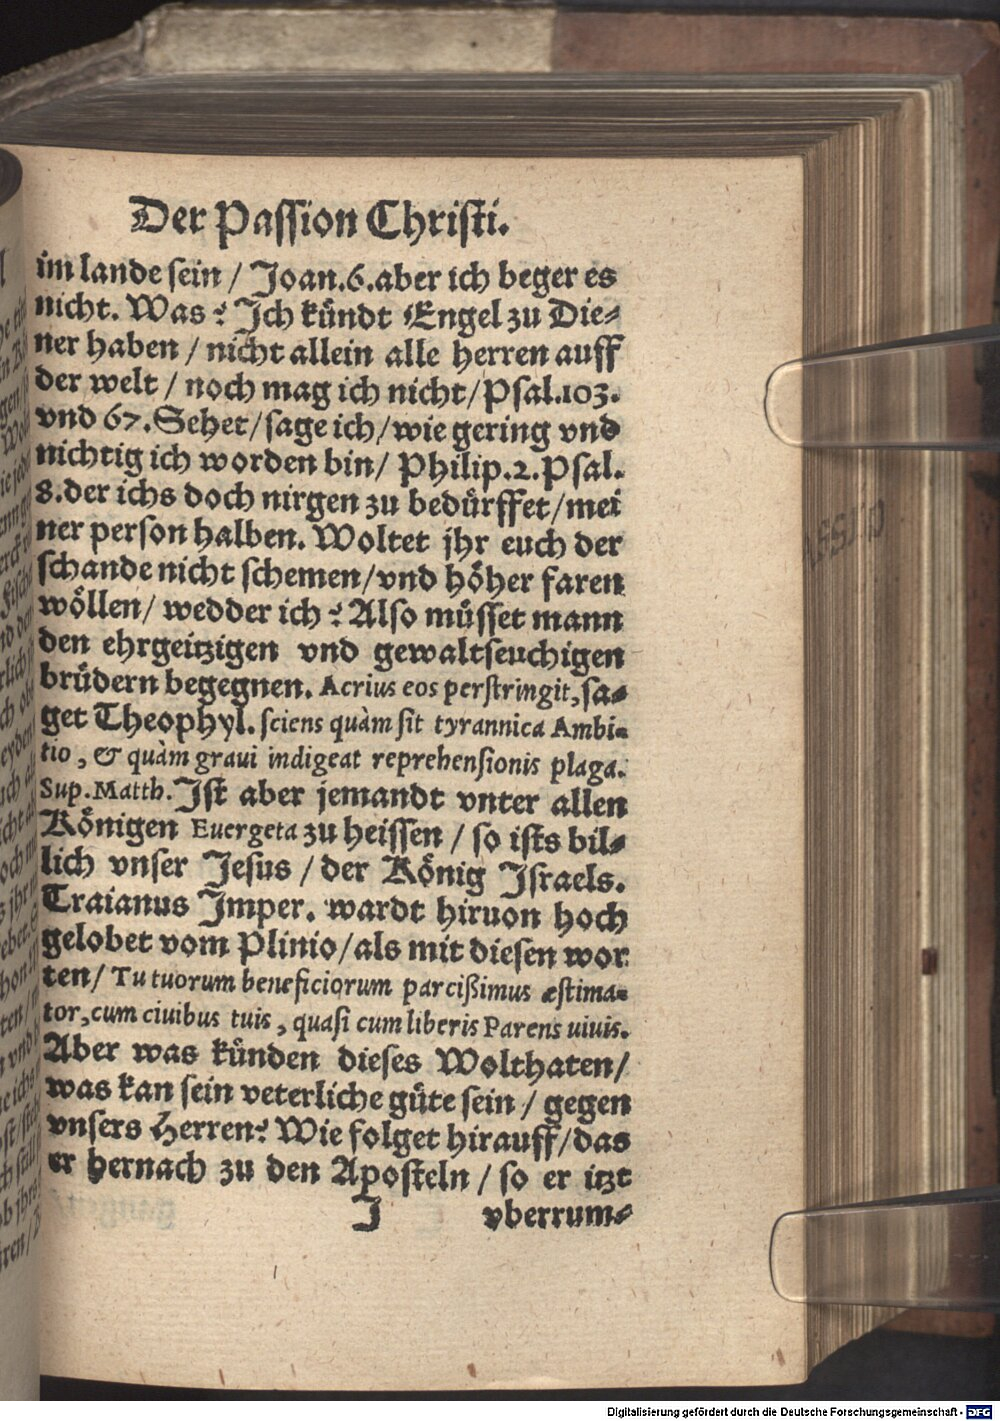 Der Paſſion Chriſti.
im lande ſein / Joan.6.aber ich beger es
nicht. Was? Jch kündt Engel zu Die⸗
ner haben / nicht allein alle herren auff
der welt / noch mag ich nicht/Pſal.103.
vnd 67.Sehet/ſage ich/wie gering vnd
nichtig ich worden bin/ Philip.2.Pſal.
8.der ichs doch nirgen zu bedürffet/mei
ner perſon halben. Woltet jhr euch der
ſchande nicht ſchemen/vnd höher faren
wöllen/ wedder ich? Alſo müſſet mann
den ehrgeitzigen vnd gewaltſeuchigen
brüdern begegnen. Acrius eos perſtringit,ſa⸗
get Theophyl. ſciens quàm ſit tyrannica Ambi⸗
tio, & quàm graui indigeat reprehenſionis plaga.
Sup.Matth. Jſt aber jemandt vnter allen
Königen Euergeta zu heiſſen / ſo iſts bil⸗
lich vnſer Jeſus / der König Jſraels.
Traianus Jmper. wardt hiruon hoch
gelobet vom Plinio/als mit dieſen wor
ten/ Tu tuorum beneficiorum parcißimus æſtima⸗
tor,cum ciuibus tuis, quaſi cum liberis Parens uiuis.
Aber was künden dieſes Wolthaten/
was kan ſein veterliche güte ſein / gegen
vnſers Herren? Wie folget hirauff/das
er hernach zu den Apoſteln / ſo er itzt
J vberrum⸗
Digitalisierung gefördert durch die Deutsche Forschungsgemeinschaft - DFG